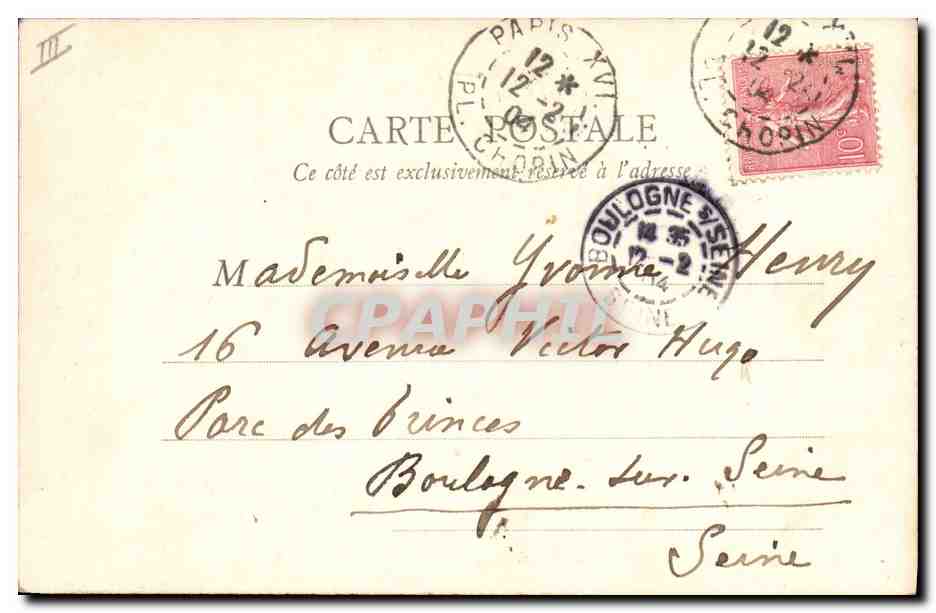 III
PARIS XVI
12 *
12 -2
04
PL. CHOPIN
12 *
12
04
PL. CHOPIN
10c
CARTE POSTALE
Ce côté est exclusivement réservé à l'adresse
BOULOGNE S/SEINE
14 35
12 -2
04
SEINE
Mademoiselle Yvonne Henry
CPAPHIL
16 Avenue Victor Hugo
Parc des Princes
Boulogne-sur-Seine
Seine